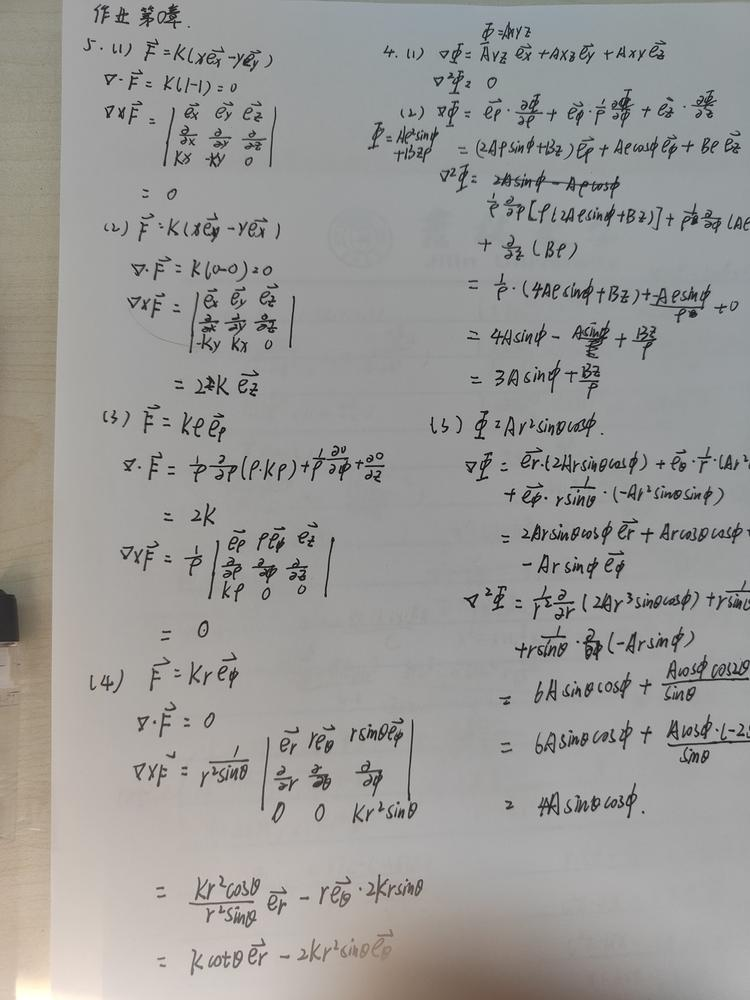 作业 第0章.
5. (1) F⃗ = K(xe⃗x - ye⃗y)
∇·F⃗ = K(1-1) = 0
∇×F⃗ = | e⃗x e⃗y e⃗z |
| ∂/∂x ∂/∂y ∂/∂z |
| Kx -Ky 0 |
= 0
(2) F⃗ = K(xe⃗y - ye⃗x)
∇·F⃗ = K(0-0) = 0
∇×F⃗ = | e⃗x e⃗y e⃗z |
| ∂/∂x ∂/∂y ∂/∂z |
| -Ky Kx 0 |
= 2K e⃗z
(3) F⃗ = Kρe⃗ρ
∇·F⃗ = 1/ρ ∂/∂ρ(ρ·Kρ) + 1/ρ ∂0/∂φ + ∂0/∂z
= 2K
∇×F⃗ = 1/ρ | e⃗ρ ρe⃗φ e⃗z |
| ∂/∂ρ ∂/∂φ ∂/∂z |
| Kρ 0 0 |
= 0
(4) F⃗ = Kre⃗φ
∇·F⃗ = 0
∇×F⃗ = 1/(r²sinθ) | e⃗r re⃗θ rsinθe⃗φ |
| ∂/∂r ∂/∂θ ∂/∂φ |
| 0 0 Kr²sinθ |
= Kr²cosθ/(r²sinθ) e⃗r - re⃗θ·2Krsinθ
= Kcotθe⃗r - 2Kr²sinθe⃗θ
Φ = Axyz
4. (1) ∇Φ = Ayz e⃗x + Axz e⃗y + Axy e⃗z
∇²Φ = 0
(2) ∇Φ = e⃗ρ·∂Φ/∂ρ + e⃗φ·1/ρ ∂Φ/∂φ + e⃗z·∂Φ/∂z
Φ = Aρ²sinφ
+Bzρ
= (2Aρsinφ+Bz)e⃗ρ + Aρcosφe⃗φ + Bρe⃗z
∇²Φ = 2Asinφ - Aρcosφ
1/ρ ∂/∂ρ[ρ(2Aρsinφ+Bz)] + 1/ρ ∂/∂φ(Aρ
+ ∂/∂z(Bρ)
= 1/ρ·(4Aρsinφ+Bz) + -Aρsinφ/ρ + 0
= 4Asinφ - Asinφ + Bz/ρ
= 3Asinφ + Bz/ρ
(3) Φ = Ar²sinθcosφ.
∇Φ = e⃗r·(2Arsinθcosφ) + e⃗θ·1/r·(Ar²
+ e⃗φ·1/(rsinθ)·(-Ar²sinθsinφ)
= 2Arsinθcosφe⃗r + Arcosθcosφ
- Arsinφe⃗φ
∇²Φ = 1/r² ∂/∂r(2Ar³sinθcosφ) + 1/(rsinθ
+ 1/(rsinθ)·∂/∂φ(-Arsinφ)
= 6Asinθcosφ + Acosφcos2θ/sinθ
= 6Asinθcosφ + Acosφ·(-2s/sinθ
= 4Asinθcosφ.